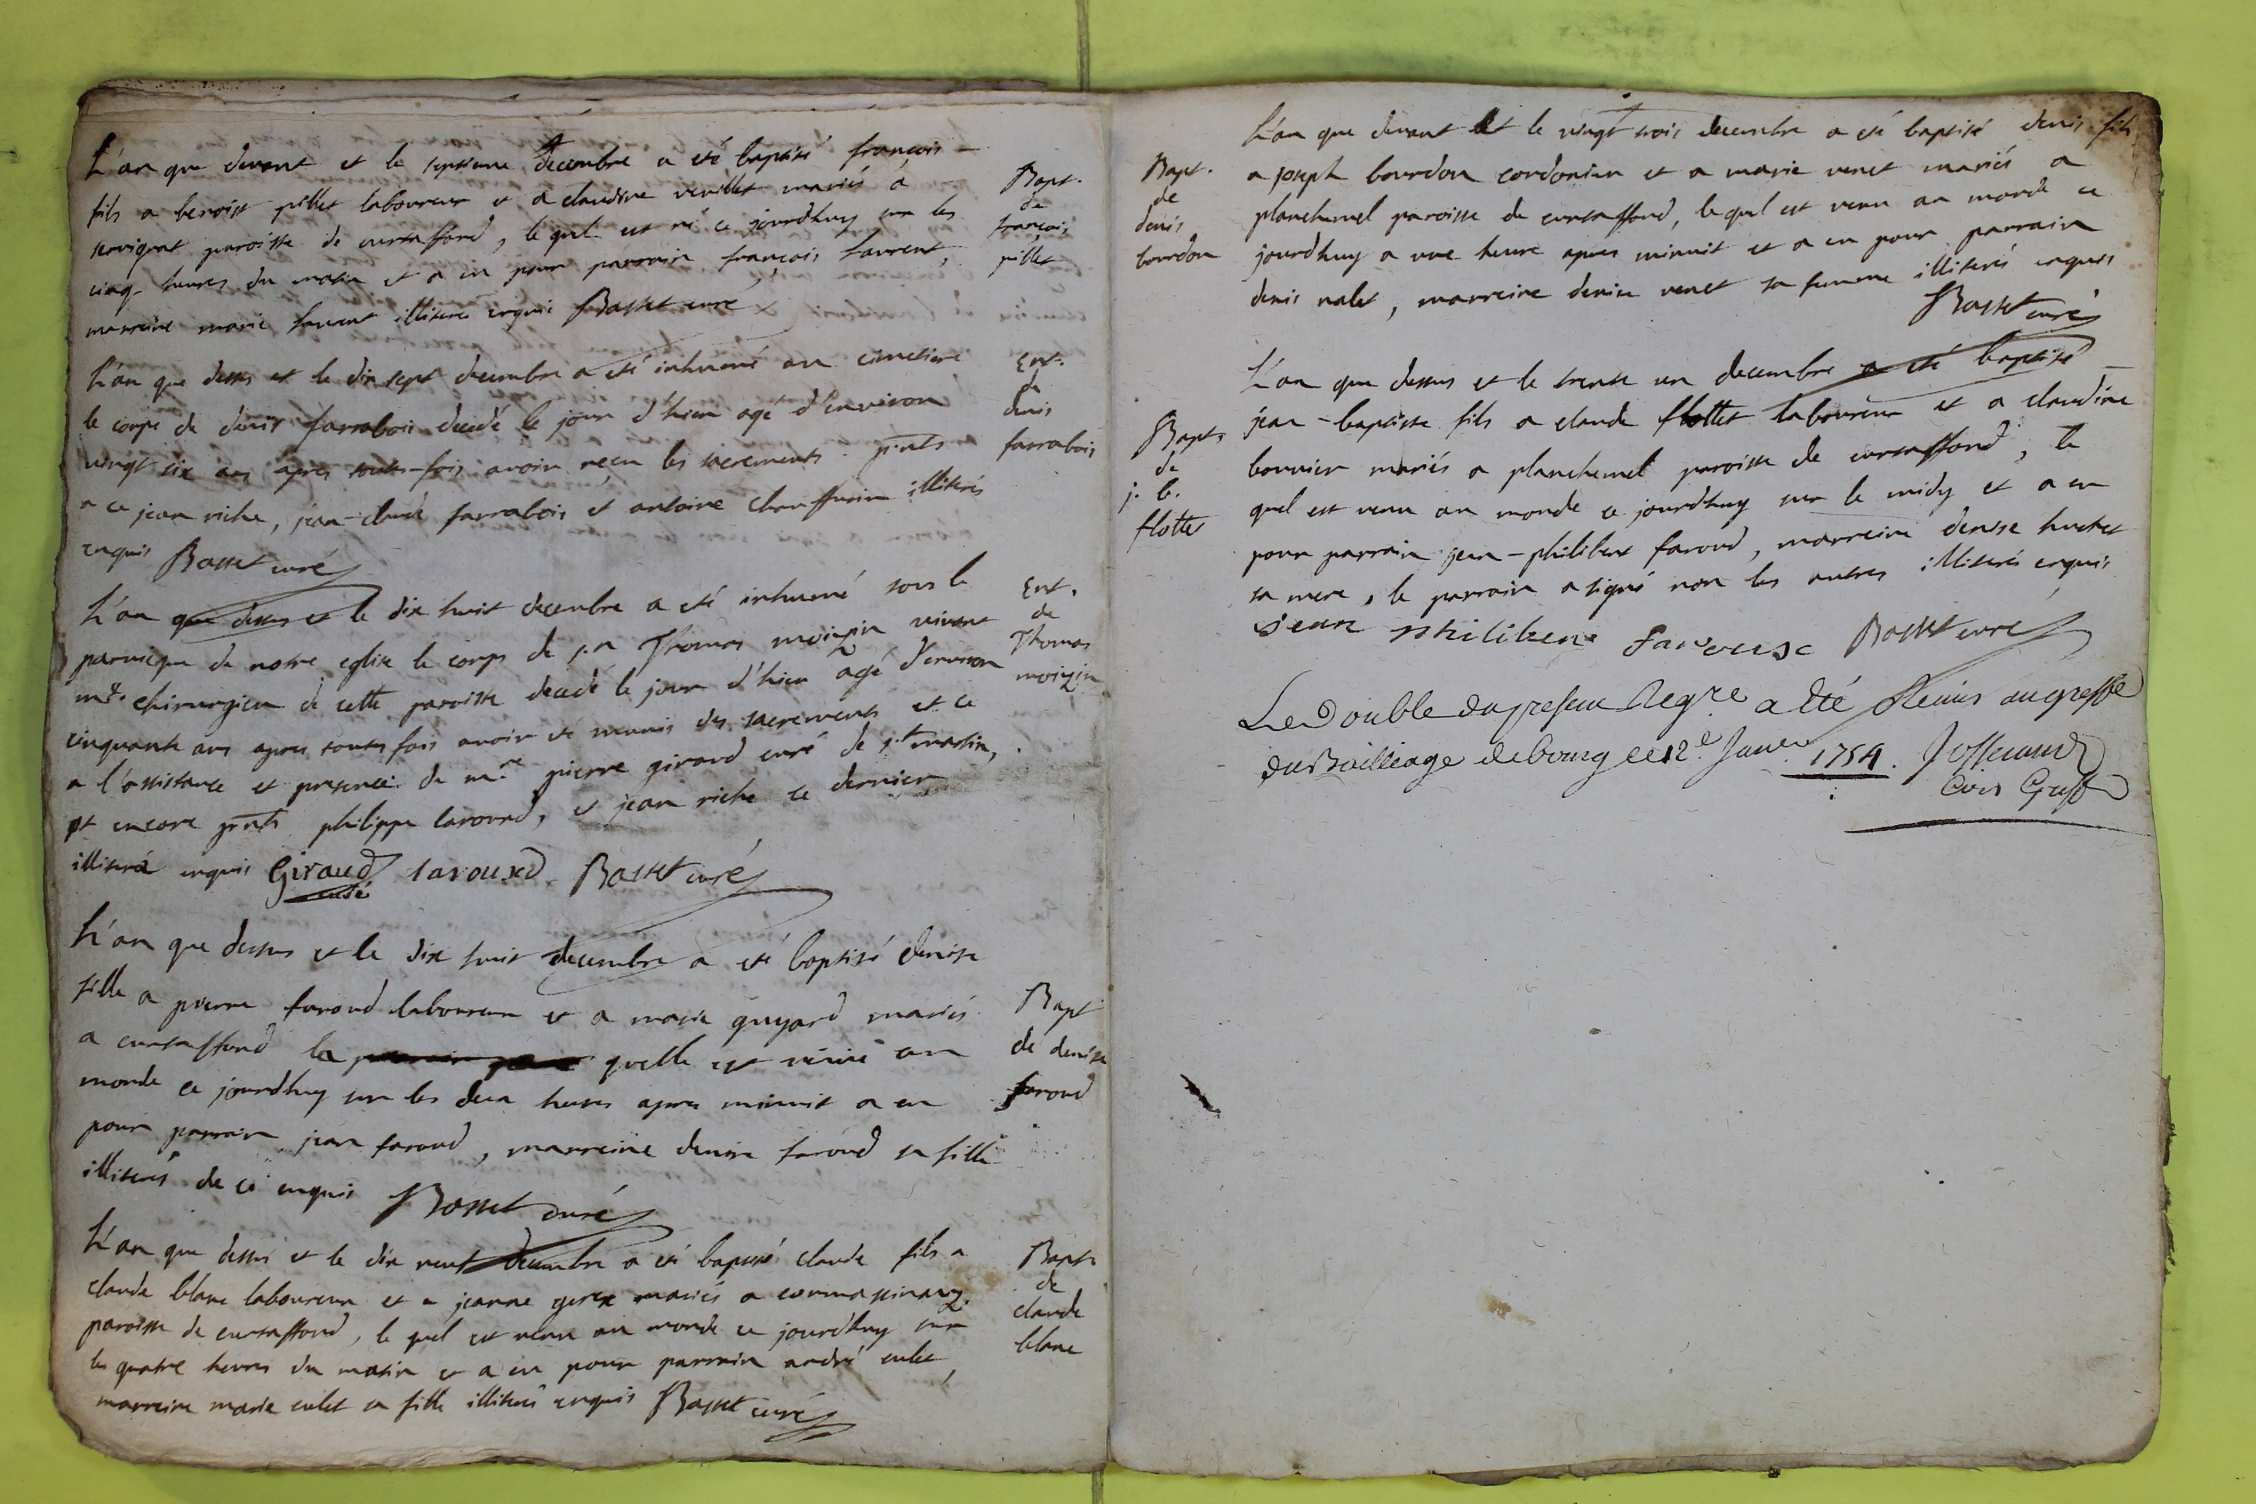 L'an que devant et le septieme decembre a eté baptisé françois
fils a benoist pillet laboureur et a claudine veuillet mariés a
servignat paroisse de curtaffond, lequel est né ce jourdhuy sur les
cinq heures du matin et a eu pour parrain françois laurent,
marreine marie laurent illiterés enquis Basset curé
Bapt.
de
françois
pillet
L'an que dessus et le dix sept decembre a eté inhumé au cimetiere
le corps de denis farrabois decedé le jour d'hier agé d'environ
vingt six ans apres toutes-fois avoir reçu les sacrements pnts
a ce jean riche, jean-claude farrabois et antoine illiterés
enquis Basset curé
Ent.
de
denis
farrabois
L'an que dessus et le dix huit decembre a eté inhumé sous le
de notre eglise le corps de Thomas moizin vivant
mtre chirurgien de cette paroisse decedé le jour d'hier agé d'environ
cinquante ans apres toutes fois avoir eté munis des sacrements et ce
a l'assistance et presence de mre pierre girard curé de st martin,
et encore pnts philippe laround, et jean riche ce dernier
illiteré enquis Giraud curé Basset curé
Ent.
de
Thomas
moizin
L'an que dessus et le dix huit decembre a eté baptisé denise
fille a pierre faroud laboureur et a marie guyard mariés
a curtaffond la quelle est venüe au
monde ce jourdhuy sur les deux heures apres minuit a eu
pour parrain jean faroud, marreine denise faroud sa fille
illiterés de ce enquis Basset curé
Bapt
de denise
faroud
L'an que dessus et le dix neuf decembre a eté baptisé claude fils a
claude blanc laboureur et a jeanne mariés a
paroisse de curtaffond, le quel est venu au monde ce jourdhuy sur
les quatre heures du matin et a eu pour parrain andré culet,
marreine marie culet sa fille illiterés enquis Basset curé
Bapt.
de
claude
blanc
L'an que devant et le vingt trois decembre a eté baptisé denis fils
a joseph bourdon cordonier et a marie venet mariés a
planchemel paroisse de curtaffond, lequel est venu au monde ce
jourdhuy a une heure apres minuit et a eu pour parrain
denis nalet, marreine denise venet sa femme illiterés enquis
Basset curé
Bapt.
de
denis
bourdon
L'an que dessus et le trente un decembre a eté baptisé
jean-baptiste fils a claude flottet laboureur et a claudine
bouvier mariés a planchemel paroisse de curtaffond, le
quel est venu au monde ce jourdhuy sur le midy et a eu
pour parrain jean-philibert faroud, marreine denise huchet
sa mere, le parrain a signé non les autres illiterés enquis
jean Basset curé
Bapt.
de
j. b.
flottet
Le Double du present Regre a eté Remis au greffe
du Bailliage de bourg le 12e Janer 1754.